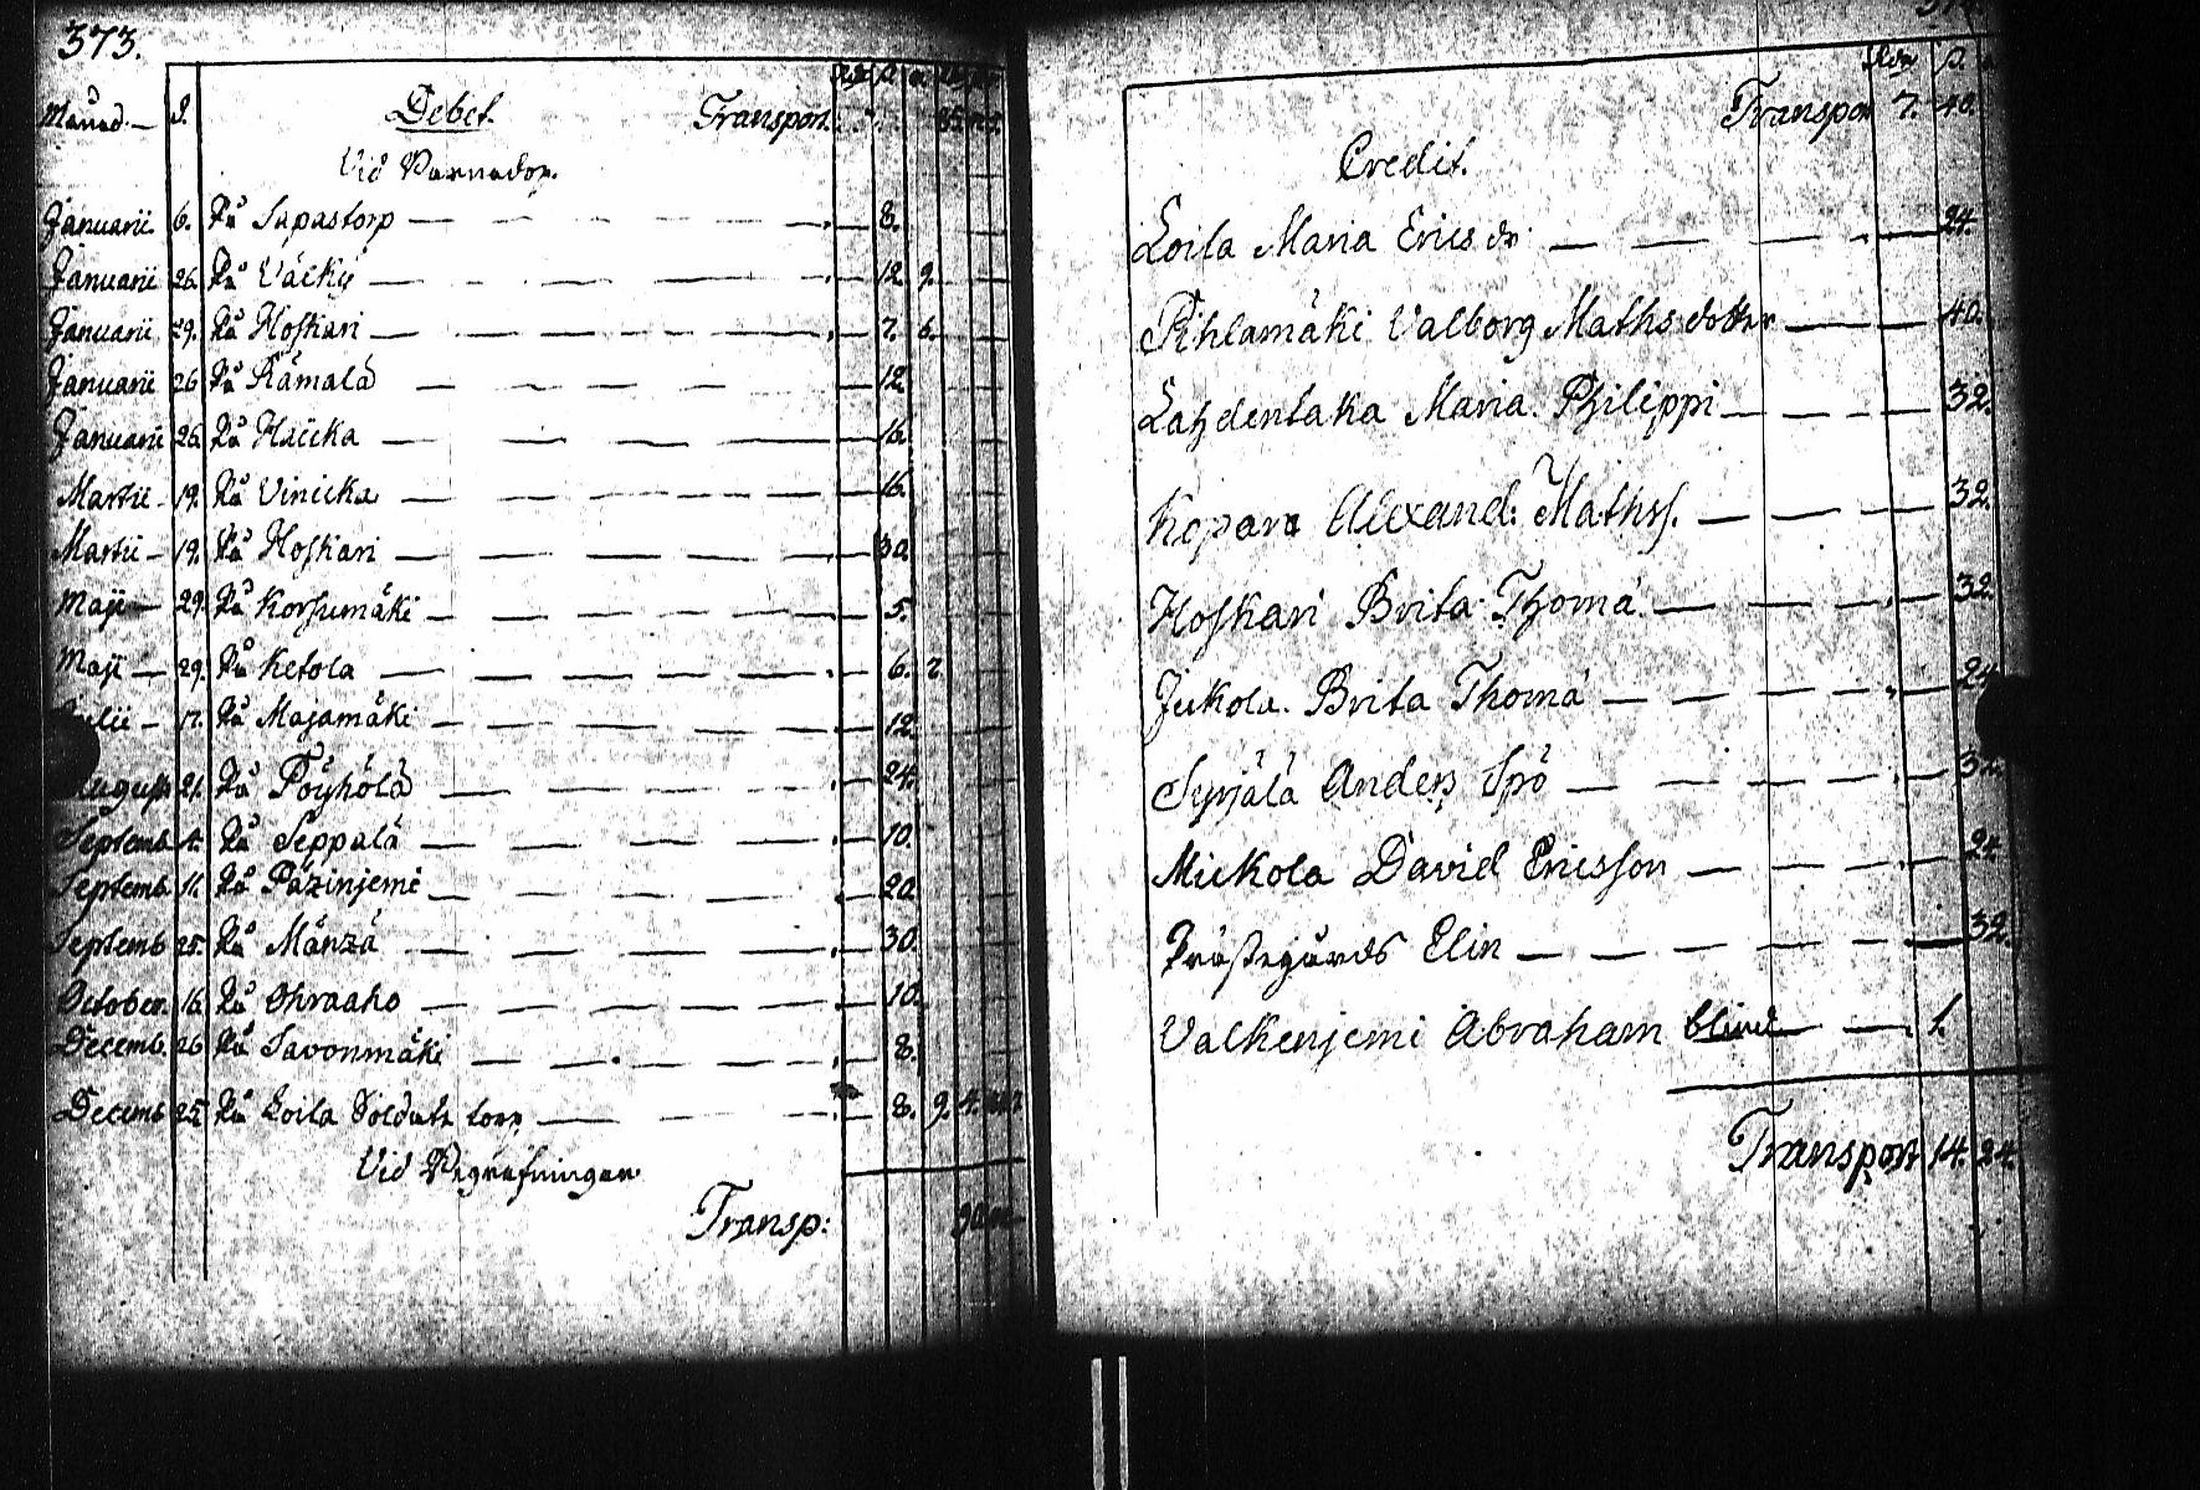 373.
Månad. — d. Debet. Transport.
Vid Barnadop.
Januarii. 6. På Sapastorp — 8.
Januarii 26. På Väcky — 12. 9.
Januarii 29. På Hoskari — 7. 6.
Januarii 26 På Rämälä — 12.
Januarii 26. På Haucka — 16.
Martii — 19. På Vinicka — 16.
Martii — 19. På Hoskari — 30.
Maji — 29. På Korsumäki — 5.
Maji — 29. På Ketola — 6. 2.
Julii — 17. På Majamäki — 12.
August 21. På Pöyhölä — 24.
Septemb. 4. På Seppälä — 10.
Septemb. 11. På Päzinjemi — 20.
Septemb 25. På Mänzä — 30.
October. 16. På Ohraaho — 10.
Decemb. 26 På Savonmäki — 8.
Decemb 25. På Loila Soldats torp — 8. 9. 4.
Vid Begrafningar.
Transp: 90
Rdr s.
Transpor 7. 40.
Credit.
Loila Maria Erics dr. — 24.
Pihlamäki Valborg Mathsdotter — 40.
Lahdentaka Maria. Philippi — 32.
Kopara Alexand: Mathss. — 32.
Hoskari Brita Thomä. — 32.
Jukola. Brita Thomä — 24
Syrjälä Anders Spö — 32.
Mickola David Ericsson — 24.
Prästegårds Elin — 32.
Valkenjemi Abraham blind — 1.
Transport 14. 24.